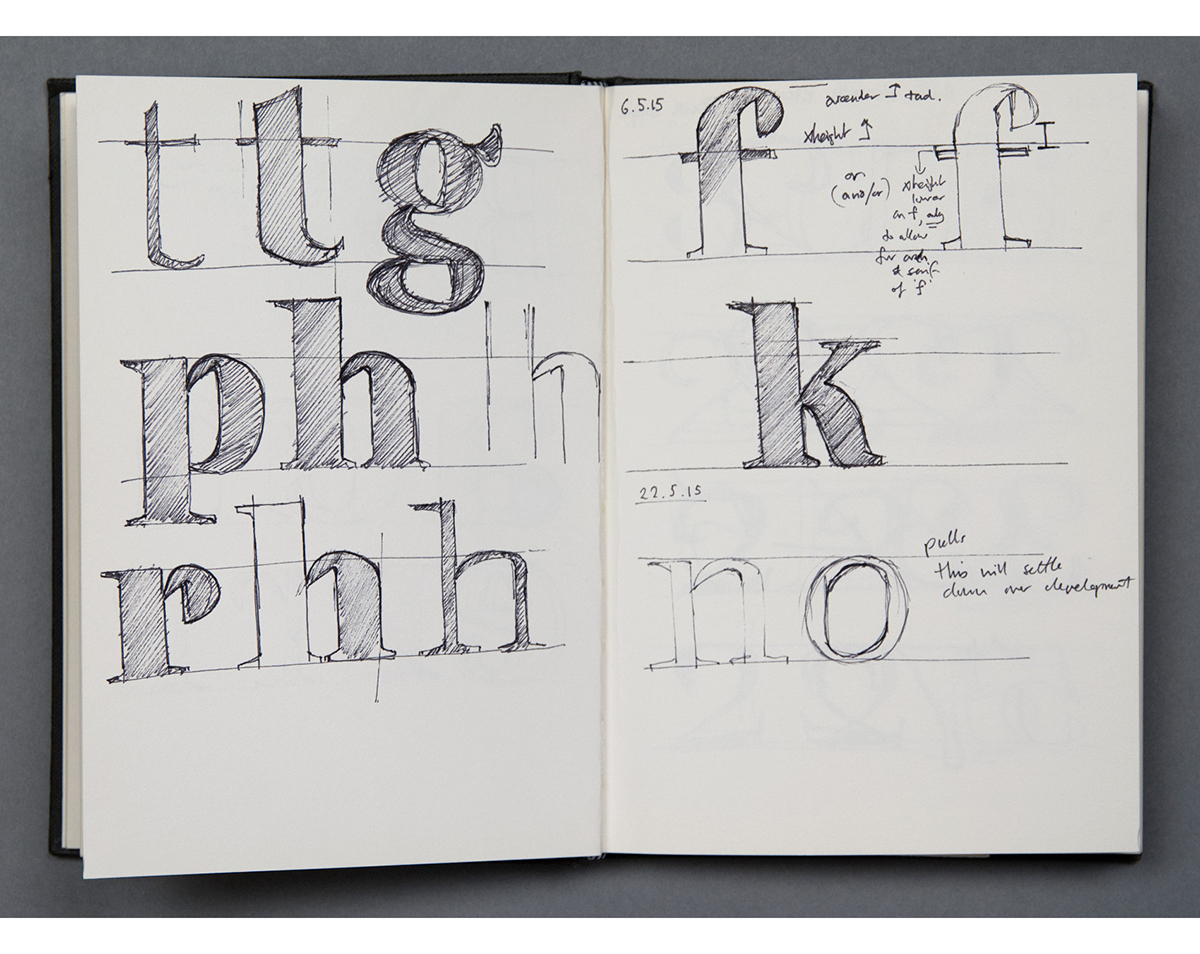 t t g
p h h
r h h h
6.5.15
f f
ascender ↕ tad.
xheight ↑
or
(and/or)
xheight
lower
on f, only
to allow
for arch
& serif
of 'f'
k
22.5.15
n o
pulls
this will settle
down over development